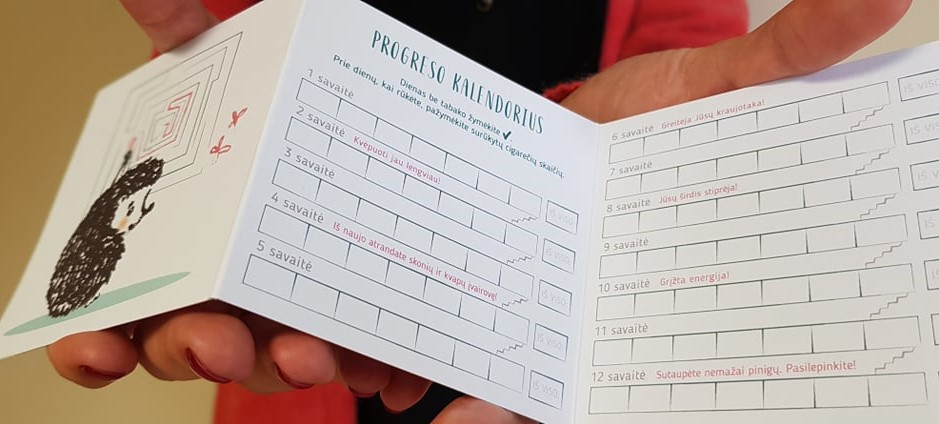 PROGRESO KALENDORIUS
Dienas be tabako žymėkite ✓
Prie dienų, kai rūkėte, pažymėkite surūkytų cigarečių skaičių.
1 savaitė
IŠ VISO
2 savaitė Kvėpuoti jau lengviau!
IŠ VISO
3 savaitė
IŠ VISO
4 savaitė Iš naujo atrandate skonių ir kvapų įvairovę!
IŠ VISO
5 savaitė
IŠ VISO
6 savaitė Greitėja Jūsų kraujotaka!
IŠ VISO
7 savaitė
8 savaitė Jūsų širdis stiprėja!
9 savaitė
10 savaitė Grįžta energija!
11 savaitė
12 savaitė Sutaupėte nemažai pinigų. Pasilepinkite!